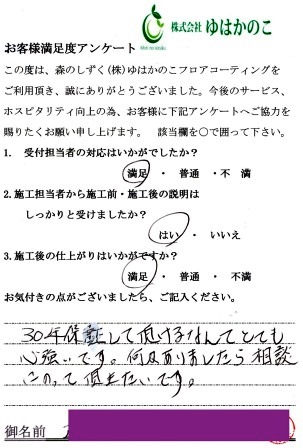 株式会社 ゆはかのこ
お客様満足度アンケート
この度は、森のしずく(株)ゆはかのこフロアコーティングを
ご利用頂き、誠にありがとうございました。今後のサービス、
ホスピタリティ向上の為、お客様に下記アンケートへご協力を
賜りたくお願い申し上げます。 該当欄を○で囲って下さい。
1. 受付担当者の対応はいかがでしたか?
満足 ・ 普通 ・ 不 満
2.施工担当者から施工前・施工後の説明は
しっかりと受けましたか?
はい ・ いいえ
3.施工後の仕上がりはいかがですか?
満足 ・ 普通 ・ 不満
お気付きの点がございましたら、ご記入ください。
30年保証して頂けるなんてとても
心強いです。何かありましたら相談
のって頂きたいです。
御名前